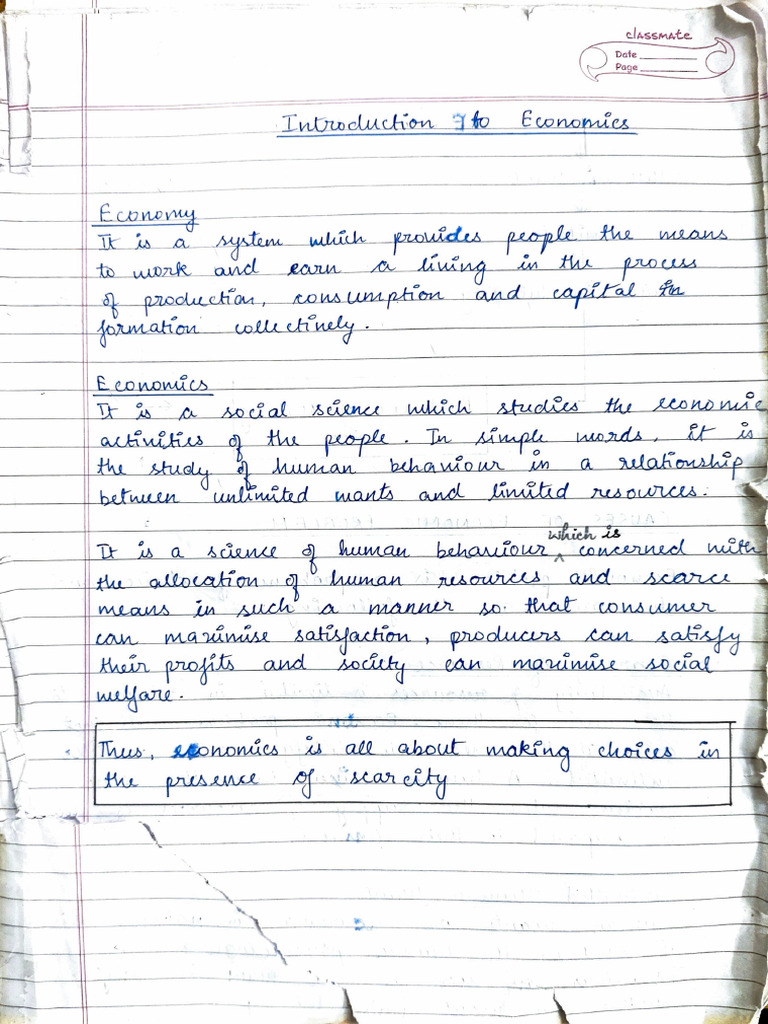 classmate
Date
Page
Introduction to Economics
Economy
It is a system which provides people the means
to work and earn a living in the process
of production, consumption and capital
formation collectively.
Economics
It is a social science which studies the economic
activities of the people. In simple words, it is
the study of human behaviour in a relationship
between unlimited wants and limited resources.
which is
It is a science of human behaviour concerned with
the allocation of human resources and scarce
means in such a manner so that consumer
can maximise satisfaction, producers can satisfy
their profits and society can maximise social
welfare.
Thus, economics is all about making choices in
the presence of scarcity